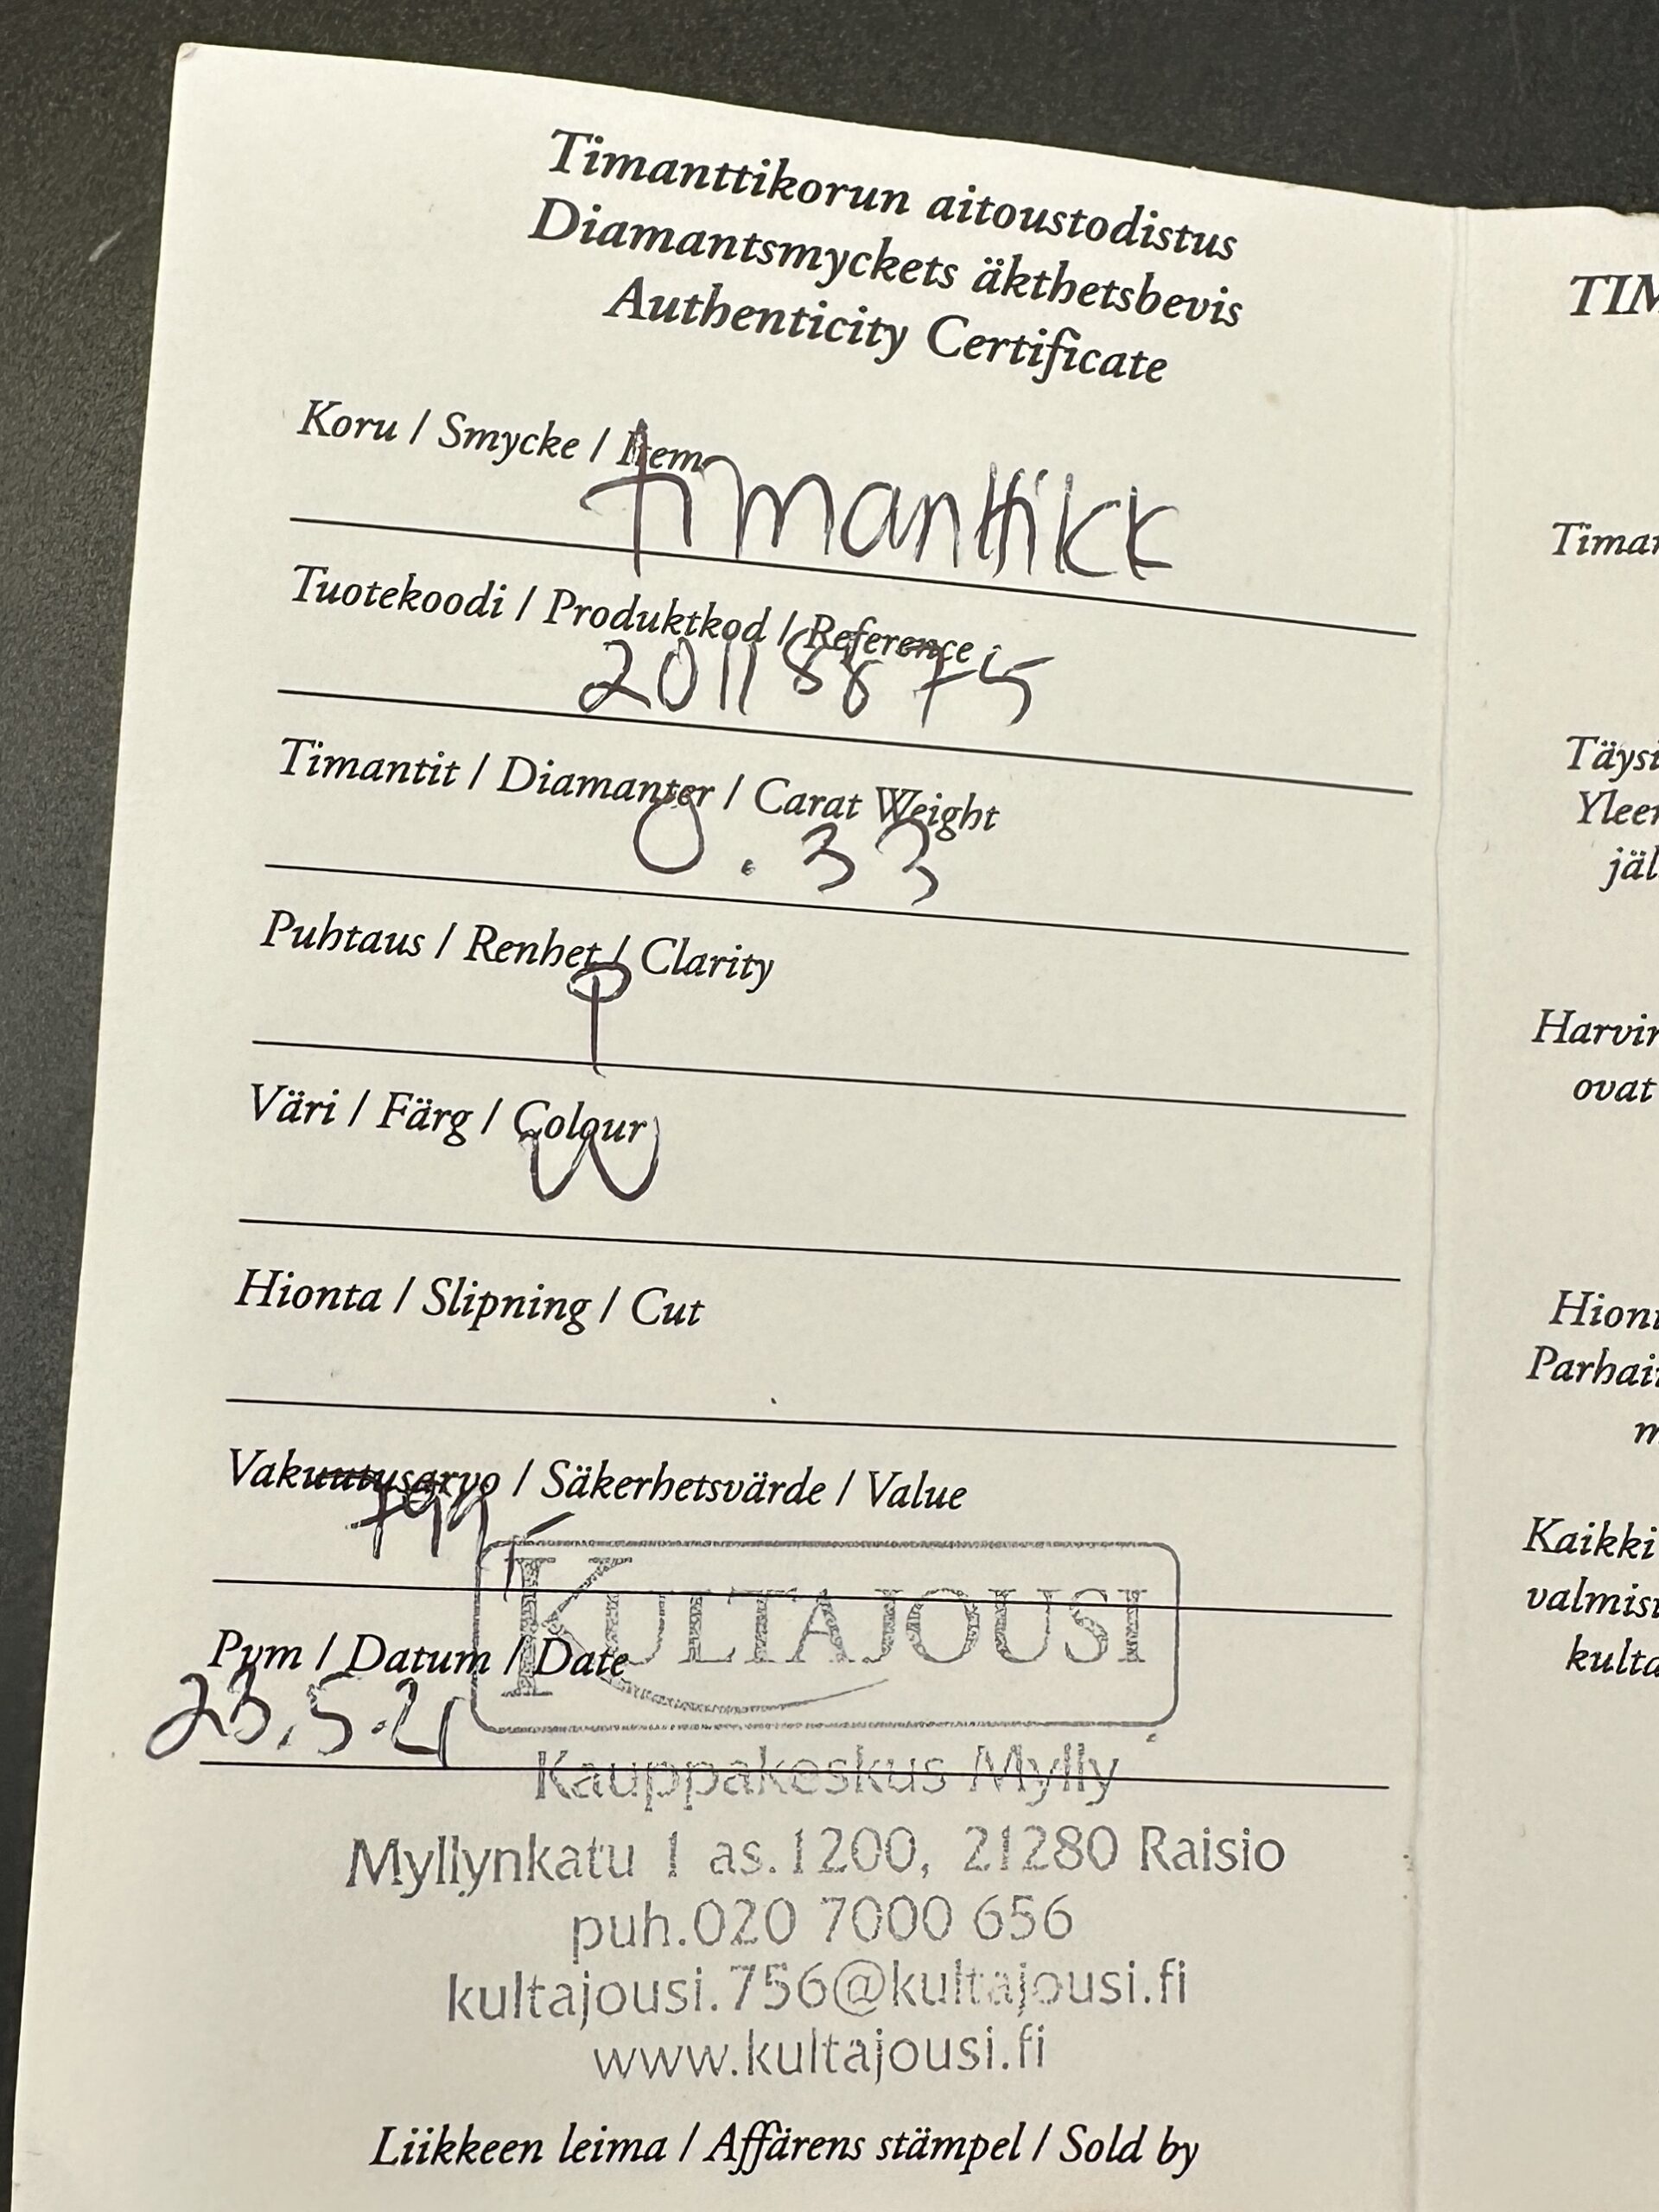 Timanttikorun aitoustodistus
Diamantsmyckets äkthetsbevis
Authenticity Certificate
Koru / Smycke / Item
timanttikk
Tuotekoodi / Produktkod / Reference
20118875
Timantit / Diamanter / Carat Weight
0.33
Puhtaus / Renhet / Clarity
P
Väri / Färg / Colour
W
Hionta / Slipning / Cut
Vakuutusarvo / Säkerhetsvärde / Value
799,-
KULTAJOUSI
Pvm / Datum / Date
23.5.21
Kauppakeskus Mylly
Myllynkatu 1 as.1200, 21280 Raisio
puh.020 7000 656
kultajousi.756@kultajousi.fi
www.kultajousi.fi
Liikkeen leima / Affärens stämpel / Sold by
ovat
Kaikki